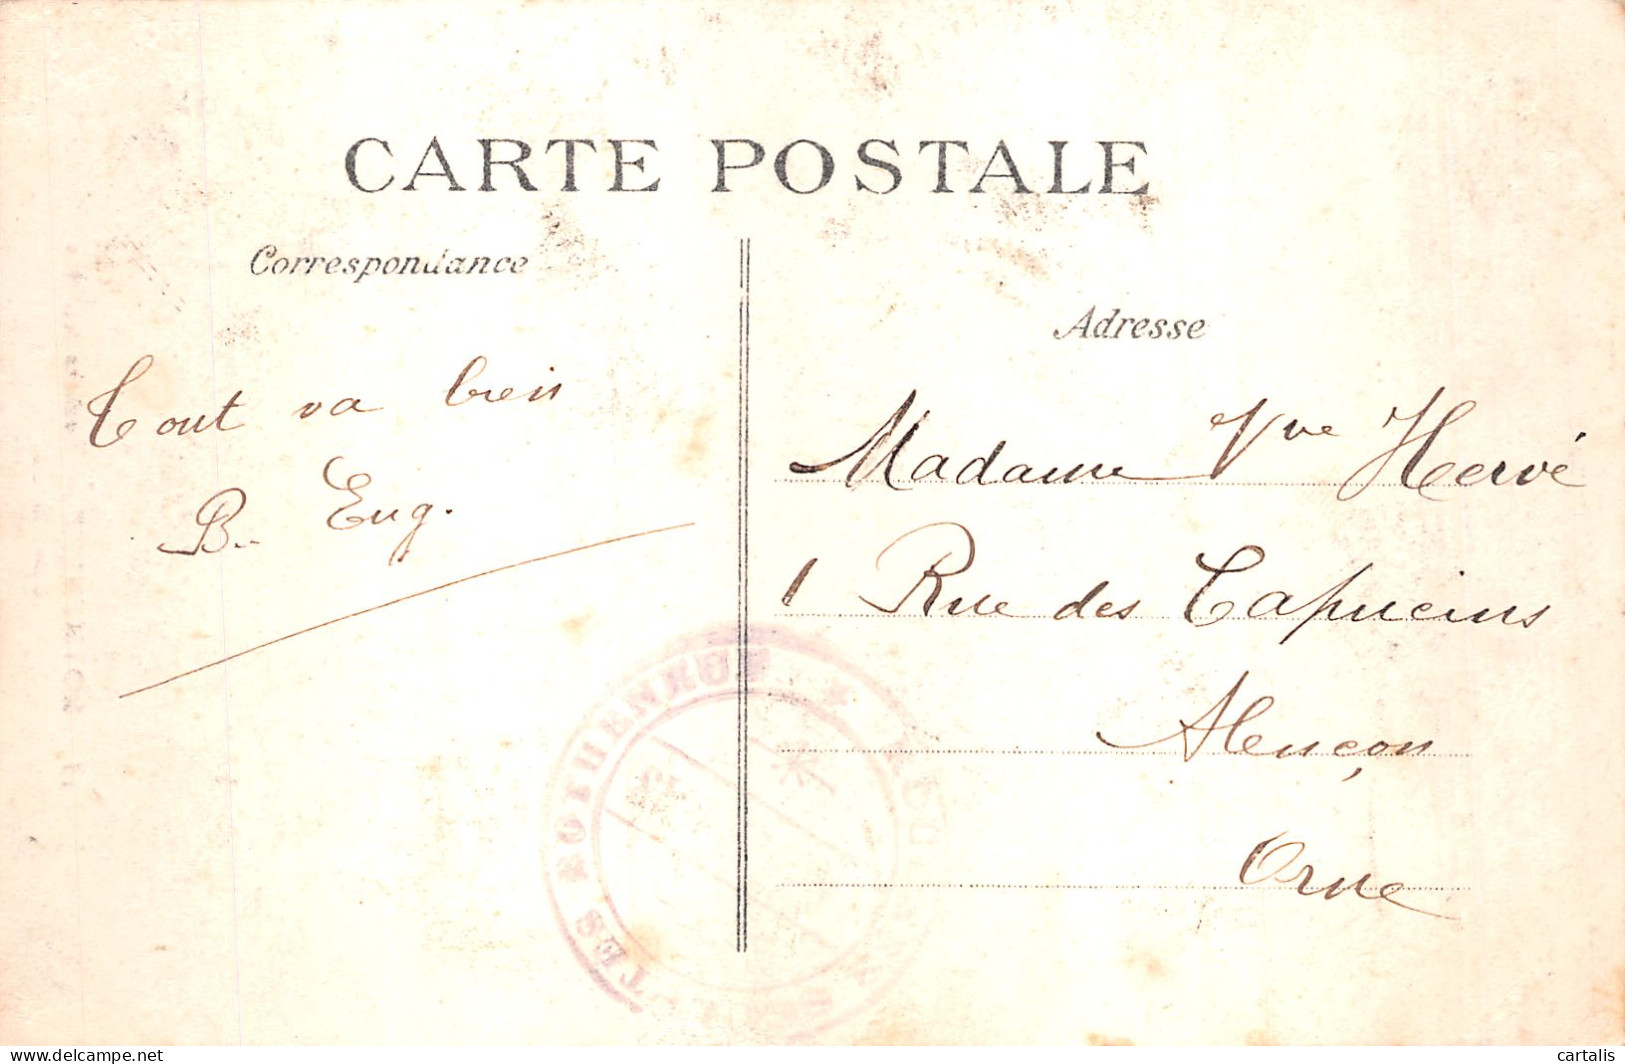 CARTE POSTALE
Correspondance
Adresse
Tout va bien
B. Eug.
Madame Vve Hervé
1 Rue des Capucins
Alençon
Orne
ROTHENEUF
cartalis
delcampe.net